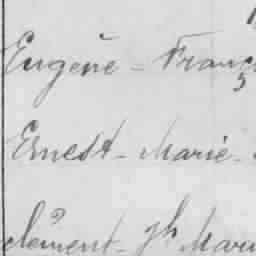 Eugène - Franç
Ernest - Marie -
Clément - Jh Mari